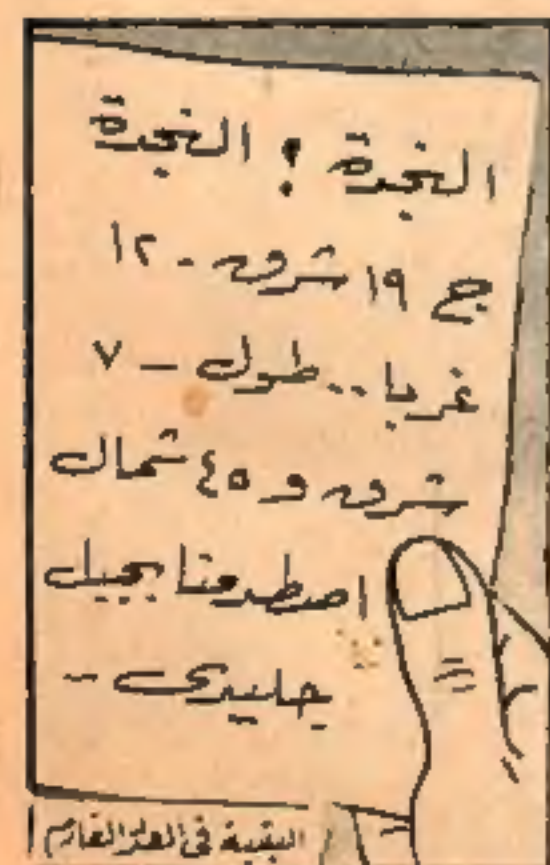 النجدة ؟ النجدة
ج ١٩ شرق - ١٢
غربا .. طول - ٧
شرق و ٤٥ شمال
اصطدمنا بجبل
جليدى -
البقية فى العدد القادم